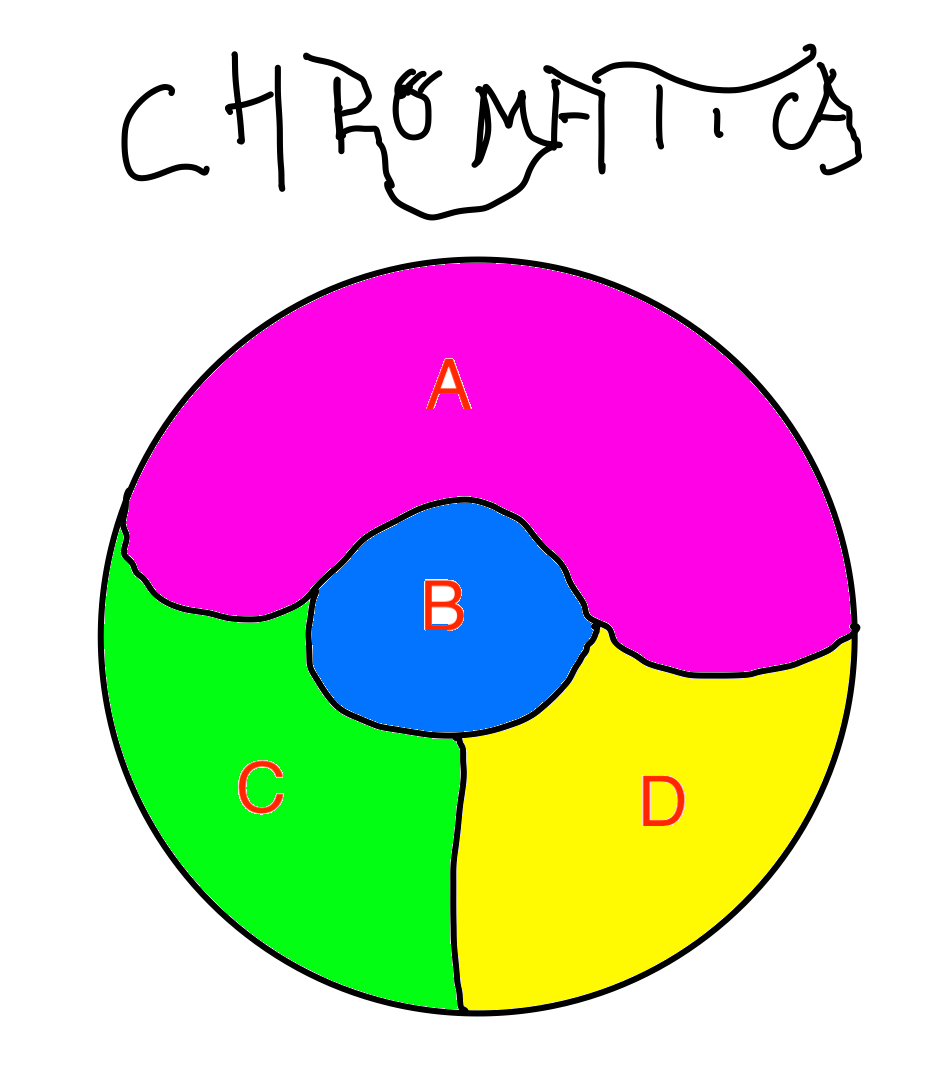 CHROMATICA
A
B
C
D